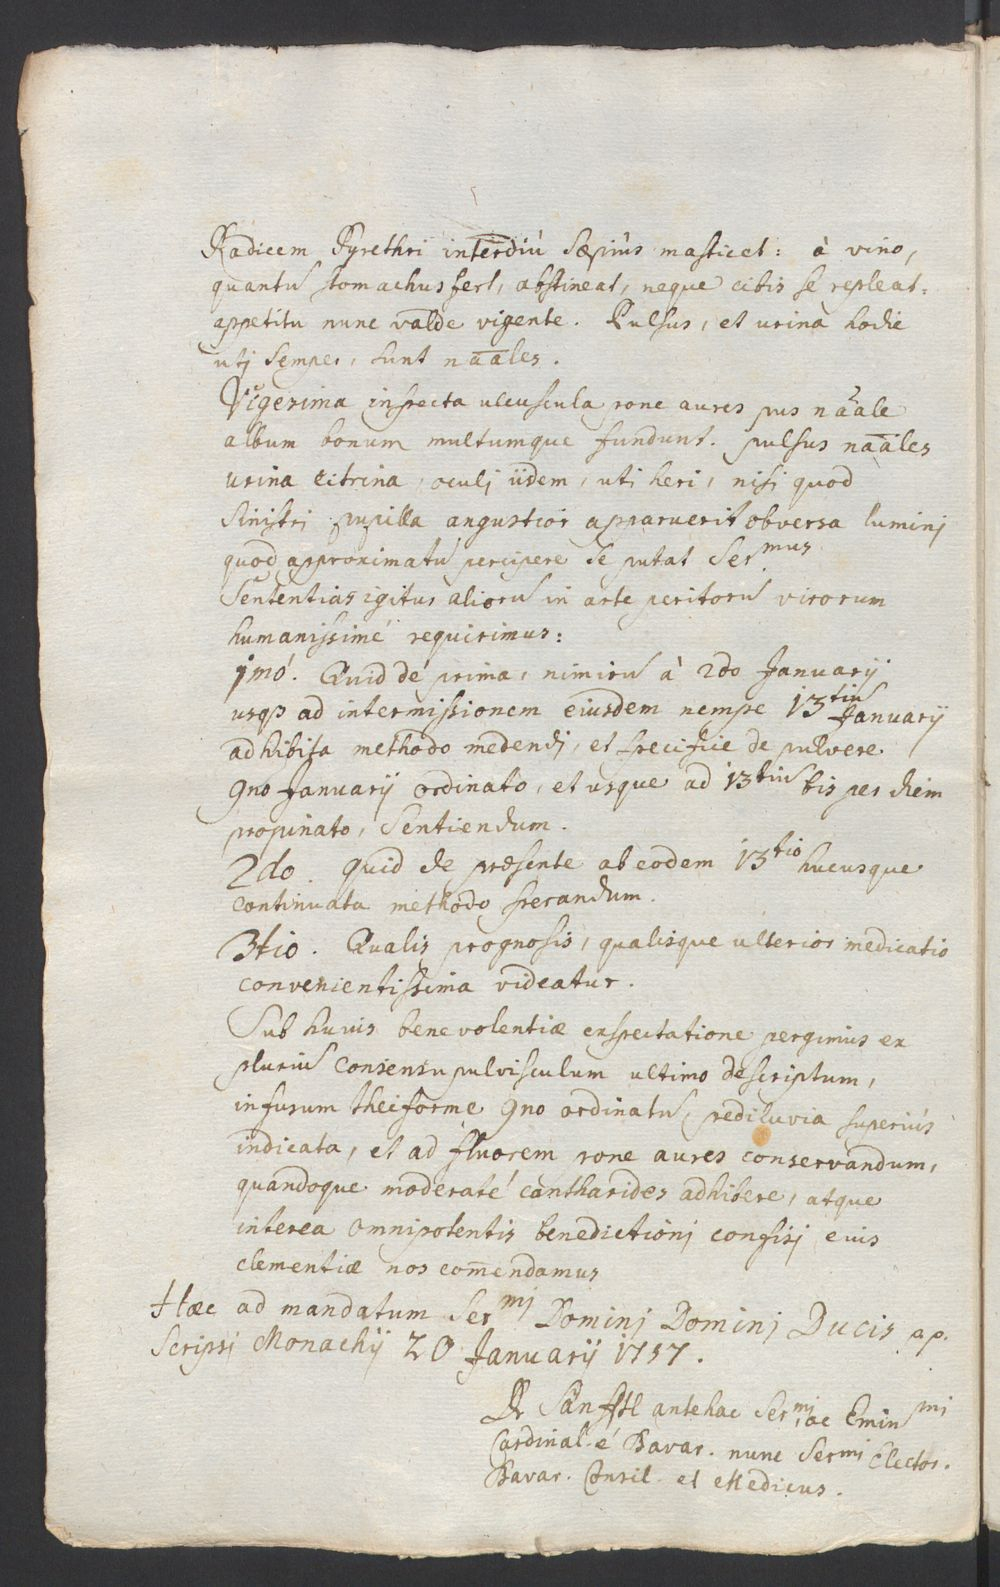 Radicem Pyrethri interdiù sæpiùs masticet: à vino,
quantū stomachus fert, abstineat, neque cibis se repleat,
appetitu nunc valde vigente. Pulsus, et urina hodie
utj semper, sunt nāāles.
Vigesima inspecta ulcuscula pone aures pus nāāle
album bonum multumque fundunt. pulsus nāāles
urina citrina, oculj iidem, uti heri, nisi quod
sinistri pupilla angustior apparuerit obversa luminj
quod approximatū percipere se putat Ser.mus
Sententias igitur aliorū in arte peritorū virorum
humanissimé requirimus:
1mó. Quid dé prima, nimirū à 2do Januarij
usqȝ ad intermissionem eiusdem nempe 13tiū Januarij
adhibita methodo medendj, et specifice de pulvere
9no Januarij ordinato, et usque ad 13tiū bis per diem
propinato, sentiendum.
2do. quid de præsente ab eodem 13tio hucusque
continuata methodo sperandum.
3tio. Qualis prognosis, qualisque ulterior medicatio
convenientissima videatur.
Sub huius benevolentiæ exspectatione pergimus ex
pluriū consensu pulvisculum ultimo descriptum,
infusum theiforme 9no ordinatū, pediluvia superiùs
indicata, et ad fluorem pone aures conservandum,
quandoque moderaté cantharides adhibere, atque
interea omnipotentis benedictionj confisj eius
clementiæ nos com̄endamus
Hæc ad mandatum Sermj Dominj Dominj Ducis pp.
scripsj Monachij 20 Januarij 1757.
Dr antehac Sermj, ac Eminmj
Cardinal. é Bavar. nunc Sermj Elector.
Bavar. Consil. et Medicus.